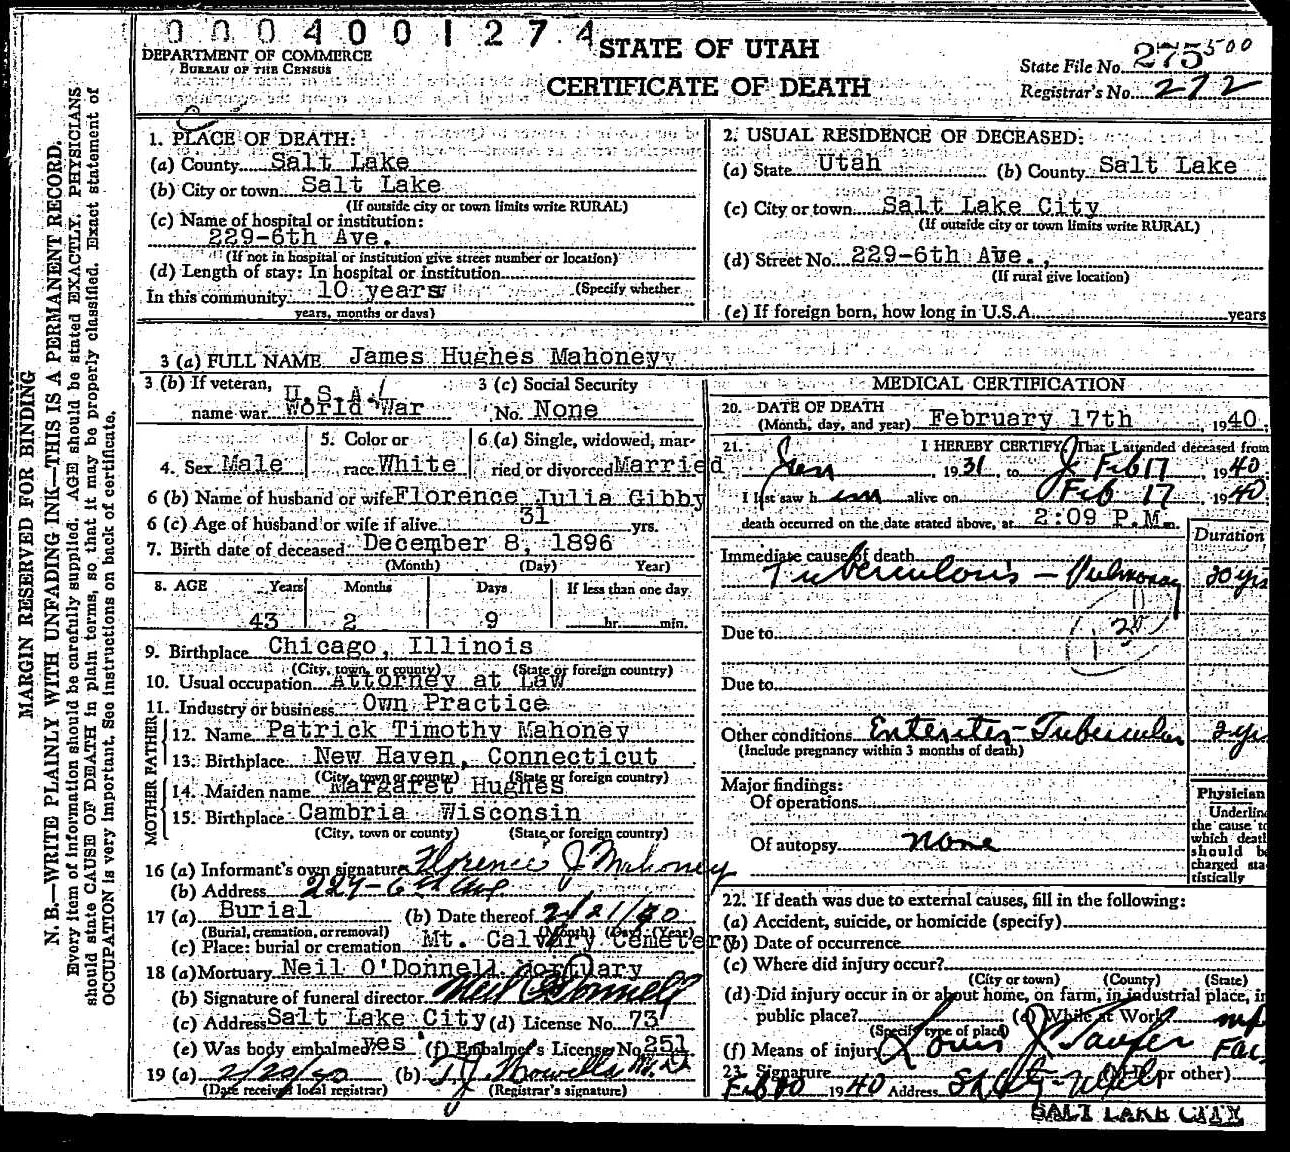 0 0 0 4 0 0 1 2 7 4
DEPARTMENT OF COMMERCE
BUREAU OF THE CENSUS
STATE OF UTAH
CERTIFICATE OF DEATH
State File No. 275 500
Registrar's No. 272
MARGIN RESERVED FOR BINDING
N. B.—WRITE PLAINLY WITH UNFADING INK—THIS IS A PERMANENT RECORD.
Every item of information should be carefully supplied. AGE should be stated EXACTLY. PHYSICIANS
should state CAUSE OF DEATH in plain terms, so that it may be properly classified. Exact statement of
OCCUPATION is very important. See instructions on back of certificate.
1. PLACE OF DEATH:
(a) County Salt Lake
(b) City or town Salt Lake
(If outside city or town limits write RURAL)
(c) Name of hospital or institution:
229-6th Ave.
(If not in hospital or institution give street number or location)
(d) Length of stay: In hospital or institution
(Specify whether
In this community 10 years
years, months or days)
2. USUAL RESIDENCE OF DECEASED:
(a) State Utah (b) County Salt Lake
(c) City or town Salt Lake City
(If outside city or town limits write RURAL)
(d) Street No. 229-6th Ave.,
(If rural give location)
(e) If foreign born, how long in U.S.A. years
3 (a) FULL NAME James Hughes Mahoneyy
3 (b) If veteran, U.S.A.
name war World War
3 (c) Social Security
No. None
4. Sex Male
5. Color or
race White
6 (a) Single, widowed, mar-
ried or divorced Married
6 (b) Name of husband or wife Florence Julia Gibby
6 (c) Age of husband or wife if alive 31 yrs.
7. Birth date of deceased December 8, 1896
(Month) (Day) Year)
8. AGE Years Months Days If less than one day
43 2 9 hr. min.
9. Birthplace Chicago, Illinois
(City, town, or county) (State or foreign country)
10. Usual occupation Attorney at Law
11. Industry or business Own Practice
FATHER
12. Name Patrick Timothy Mahoney
13. Birthplace New Haven, Connecticut
(City, town or county) (State or foreign country)
MOTHER
14. Maiden name Margaret Hughes
15. Birthplace Cambria Wisconsin
(City, town or county) (State or foreign country)
16 (a) Informant's own signature Florence J Mahoney
(b) Address 229-6th Ave
17 (a) Burial (b) Date thereof 2/21/40
(Burial, cremation, or removal) (Month) (Day) (Year)
(c) Place: burial or cremation Mt. Calvary Cemetery
18 (a) Mortuary Neil O'Donnell Mortuary
(b) Signature of funeral director Neil O'Donnell
(c) Address Salt Lake City (d) License No. 73
(e) Was body embalmed? yes (f) Embalmer's License No. 251
19 (a) 2/20/40 (b) T.J. Howells M.D.
(Date received local registrar) (Registrar's signature)
MEDICAL CERTIFICATION
20. DATE OF DEATH
(Month, day, and year) February 17th, 1940.
21. I HEREBY CERTIFY, That I attended deceased from
Jan 1931, to Feb 17, 1940
I last saw him alive on Feb 17 1940.
death occurred on the date stated above, at 2:09 P.M. m.
Duration
Immediate cause of death
Tuberculosis - Pulmonary 20 yrs
Due to
Due to
Other conditions Enteritis - Tubercular 2 yrs
(Include pregnancy within 3 months of death)
Major findings:
Of operations
Of autopsy none
Physician
Underline
the cause to
which death
should be
charged sta-
tistically
22. If death was due to external causes, fill in the following:
(a) Accident, suicide, or homicide (specify)
(b) Date of occurrence
(c) Where did injury occur?
(City or town) (County) (State)
(d) Did injury occur in or about home, on farm, in industrial place, in
public place? (e) While at Work
(Specify type of place)
(f) Means of injury
23. Signature Louis J (M.D. or other)
Feb 1940 Address
SALT LAKE CITY